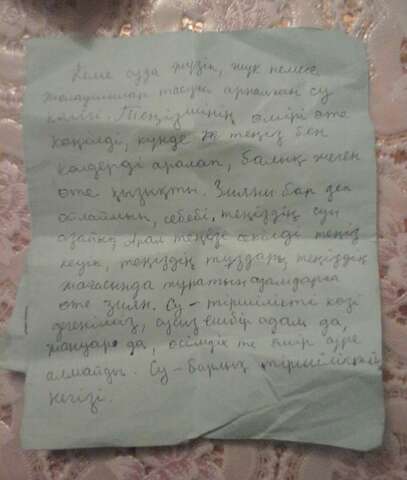 Кеме суда жүзіп, жүк немесе
жолаушылар тасуға арналған су
көлігі. Теңізшінің өмірі өте
көңілді, күнде ж теңіз бен
көлдерді аралап, балық жеген
өте қызықты. Зияны бар деп
ойлаймын, себебі, теңіздің суы
азайса Арал теңізі секілді теңіз
теңіздің тұздары, теңіздің
жағасында тұратын адамдарға
өте зиян. Су - тіршіліктің көзі
екіні сусыз ешбір адам да,
жануар да, өсімдік те өмір сүре
алмайды. Су - барлық тіршіліктің
негізі.